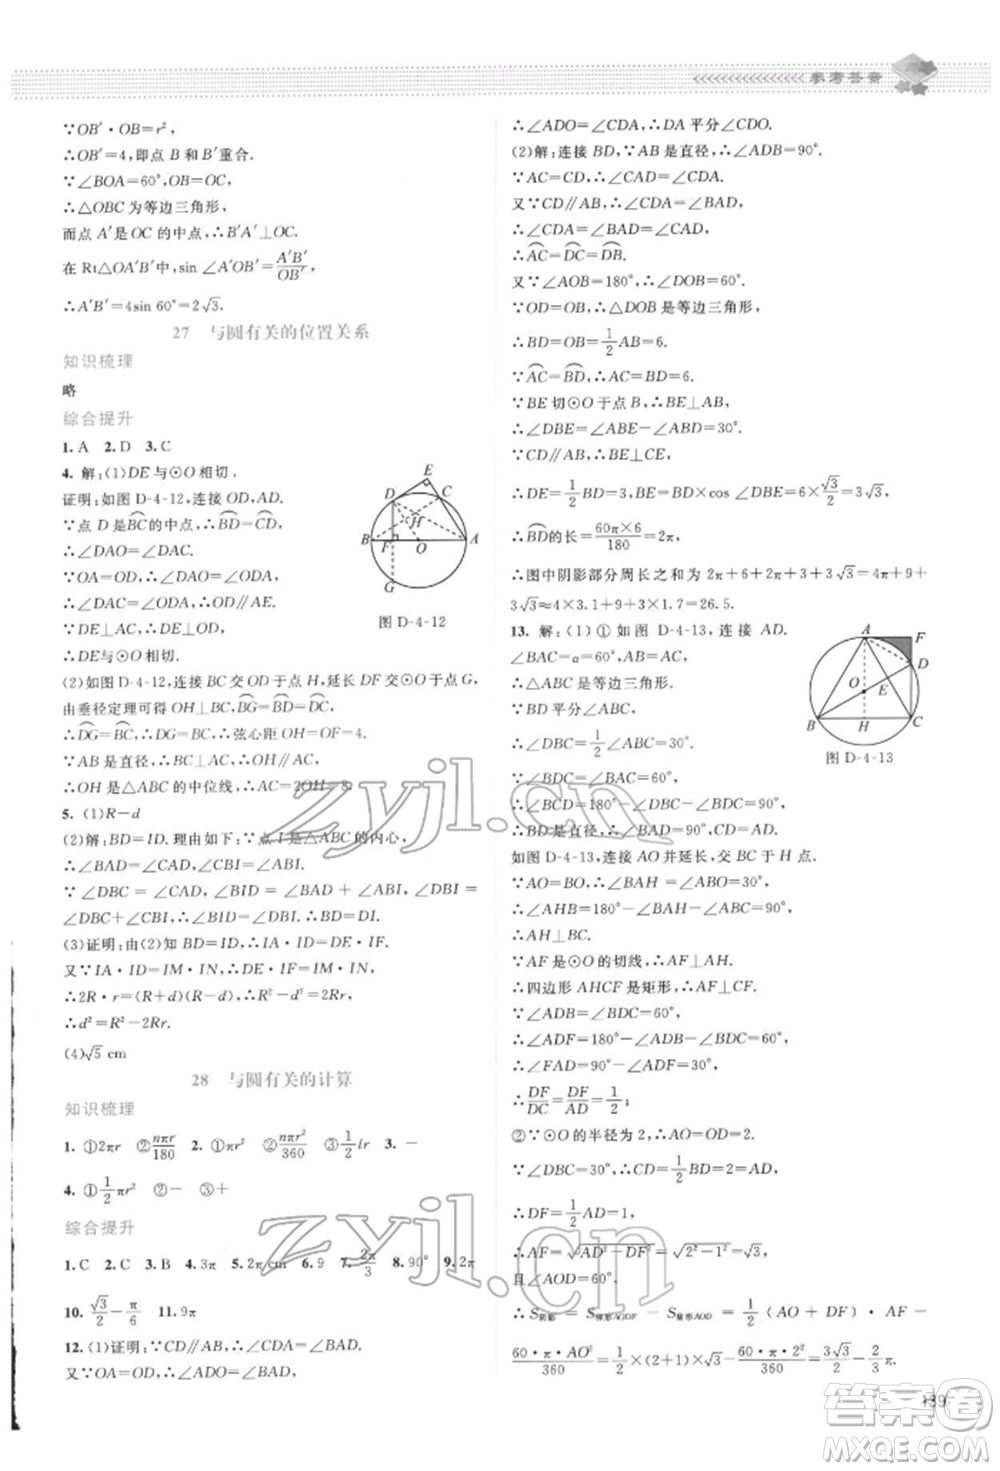 参考答案
∵OB′·OB=r²,
∴OB′=4,即点 B 和 B′重合.
∵∠BOA=60°,OB=OC,
∴△OBC 为等边三角形,
而点 A′是 OC 的中点,∴B′A′⊥OC.
在 Rt△OA′B′中,sin ∠A′OB′=A′B′/OB′,
∴A′B′=4sin 60°=2√3.
27 与圆有关的位置关系
知识梳理
略
综合提升
1. A 2. D 3. C
4. 解:(1)DE与⊙O 相切.
证明:如图 D-4-12,连接 OD,AD.
∵点 D 是BC的中点,∴BD=CD,
∴∠DAO=∠DAC.
∵OA=OD,∴∠DAO=∠ODA,
∴∠DAC=∠ODA,∴OD∥AE.
∵DE⊥AC,∴DE⊥OD,
∴DE与⊙O 相切.
E D C H B F O A G
图 D-4-12
(2)如图 D-4-12,连接 BC 交 OD 于点 H,延长 DF 交⊙O 于点 G,
由垂径定理可得 OH⊥BC,BG=BD=DC,
∴DG=BC,∴DG=BC,∴弦心距 OH=OF=4.
∵AB 是直径,∴BC⊥AC,
∴OH 是△ABC 的中位线,∴AC=2OH=8.
5. (1)R-d
(2)解:BD=ID.理由如下:∵点 I 是△ABC 的内心,
∴∠BAD=∠CAD,∠CBI=∠ABI.
∵∠DBC=∠CAD,∠BID=∠BAD+∠ABI,∠DBI=
∠DBC+∠CBI,∴∠BID=∠DBI,∴BD=DI.
(3)证明:由(2)知 BD=ID,∴IA·ID=DE·IF.
又∵IA·ID=IM·IN,∴DE·IF=IM·IN,
∴2R·r=(R+d)(R-d),∴R²-d²=2Rr,
∴d²=R²-2Rr.
(4)√5 cm
28 与圆有关的计算
知识梳理
1. ①2πr ②nπr/180 2. ①πr² ②nπr²/360 ③1/2 lr 3. -
4. ①1/2 πr² ②- ③+
综合提升
1. C 2. C 3. B 4. 3π 5. 2π cm 6. 9 7. 2π/3 8. 90° 9. 2π
10. √3/2-π/6 11. 9π
12. (1)证明:∵CD∥AB,∴∠CDA=∠BAD.
又∵OA=OD,∴∠ADO=∠BAD,
∴∠ADO=∠CDA,∴DA 平分∠CDO.
(2)解:连接 BD,∵AB 是直径,∴∠ADB=90°.
∵AC=CD,∴∠CAD=∠CDA.
又∵CD∥AB,∴∠CDA=∠BAD,
∴∠CDA=∠BAD=∠CAD,
∴AC=DC=DB.
又∵∠AOB=180°,∴∠DOB=60°.
∵OD=OB,∴△DOB 是等边三角形,
∴BD=OB=1/2 AB=6.
∵AC=BD,∴AC=BD=6.
∵BE 切⊙O 于点 B,∴BE⊥AB,
∴∠DBE=∠ABE-∠ABD=30°.
∵CD∥AB,∴BE⊥CE,
∴DE=1/2 BD=3,BE=BD×cos ∠DBE=6×√3/2=3√3,
∴BD的长=60π×6/180=2π,
∴图中阴影部分周长之和为 2π+6+2π+3+3√3=4π+9+
3√3≈4×3.1+9+3×1.7=26.5.
13. 解:(1)①如图 D-4-13,连接 AD.
∠BAC=α=60°,AB=AC,
∴△ABC 是等边三角形.
∵BD 平分∠ABC,
∴∠DBC=1/2∠ABC=30°.
∵∠BAC+∠BDC=180°,
∴∠BCD=180°-∠DBC-∠BDC=90°,
∴BD是直径,∴∠BAD=90°.
A F D O E B H C
图 D-4-13
如图 D-4-13,连接 AO 并延长,交 BC 于 H 点.
∵AO=BO,∴∠BAO=∠ABO=30°,
∴∠AHB=180°-∠BAO-∠ABC=90°,
∴AH⊥BC.
∵AF 是⊙O 的切线,∴AF⊥AH.
∴四边形 AHCF 是矩形,∴AF⊥CF.
∵∠ADB=∠BDC=60°,
∴∠ADF=180°-∠ADB-∠BDC=60°,
∴DF/DC=DF/AD=1/2;
②∵⊙O 的半径为 2,∴AO=OD=2.
∵∠DBC=30°,∴CD=1/2 BD=2=AD,
∴DF=1/2 AD=1,
∴AF=√AD²-DF²=√2²-1²=√3,
且∠AOD=60°,
∴ S阴影 = S梯形AODF - S扇形AOD = 1/2 (AO + DF) · AF -
60·π·AO²/360=1/2×(2+1)×√3-60·π·2²/360=3√3/2-2/3 π.
139
zyjl.cn
zyjl.cn
答案圈
MXQE.COM